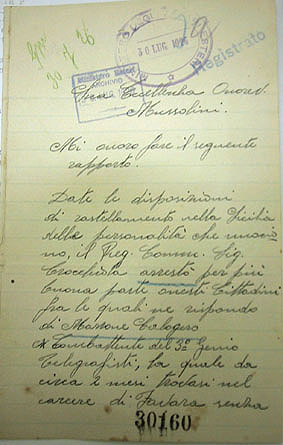 30 7 26
30 LUG. 1926
Registrato
Ministero Esteri
ARCHIVIO
Sua Eccellenza Onorev.
Mussolini.
Mi onoro fare il seguente
rapporto.
Date le disposizioni
di rastellamento nella Sicilia
della personalità che nuocio
no, il Reg. Comm. Sig.
arrestò per più
buona parte onesti Cittadini
fra le quali ne rispondo
di Mattone Calogero
Combattente del 3º Genio
Telegrafisti, la quale da
circa 2 mesi trovasi nel
carcere di Favara senza
30160